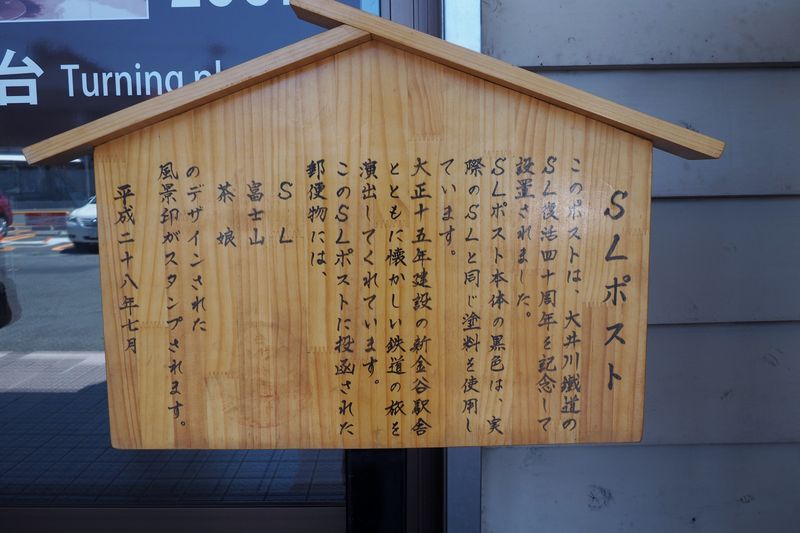 台 Turning
SLポスト
このポストは、大井川鐵道の
SL復活四十周年を記念して
設置されました。
SLポスト本体の黒色は、実
際のSLと同じ塗料を使用し
ています。
大正十五年建設の新金谷駅舎
とともに懐かしい鉄道の旅を
演出してくれています。
このSLポストに投函された
郵便物には、
SL
富士山
茶娘
のデザインされた
風景印がスタンプされます。
平成二十八年七月